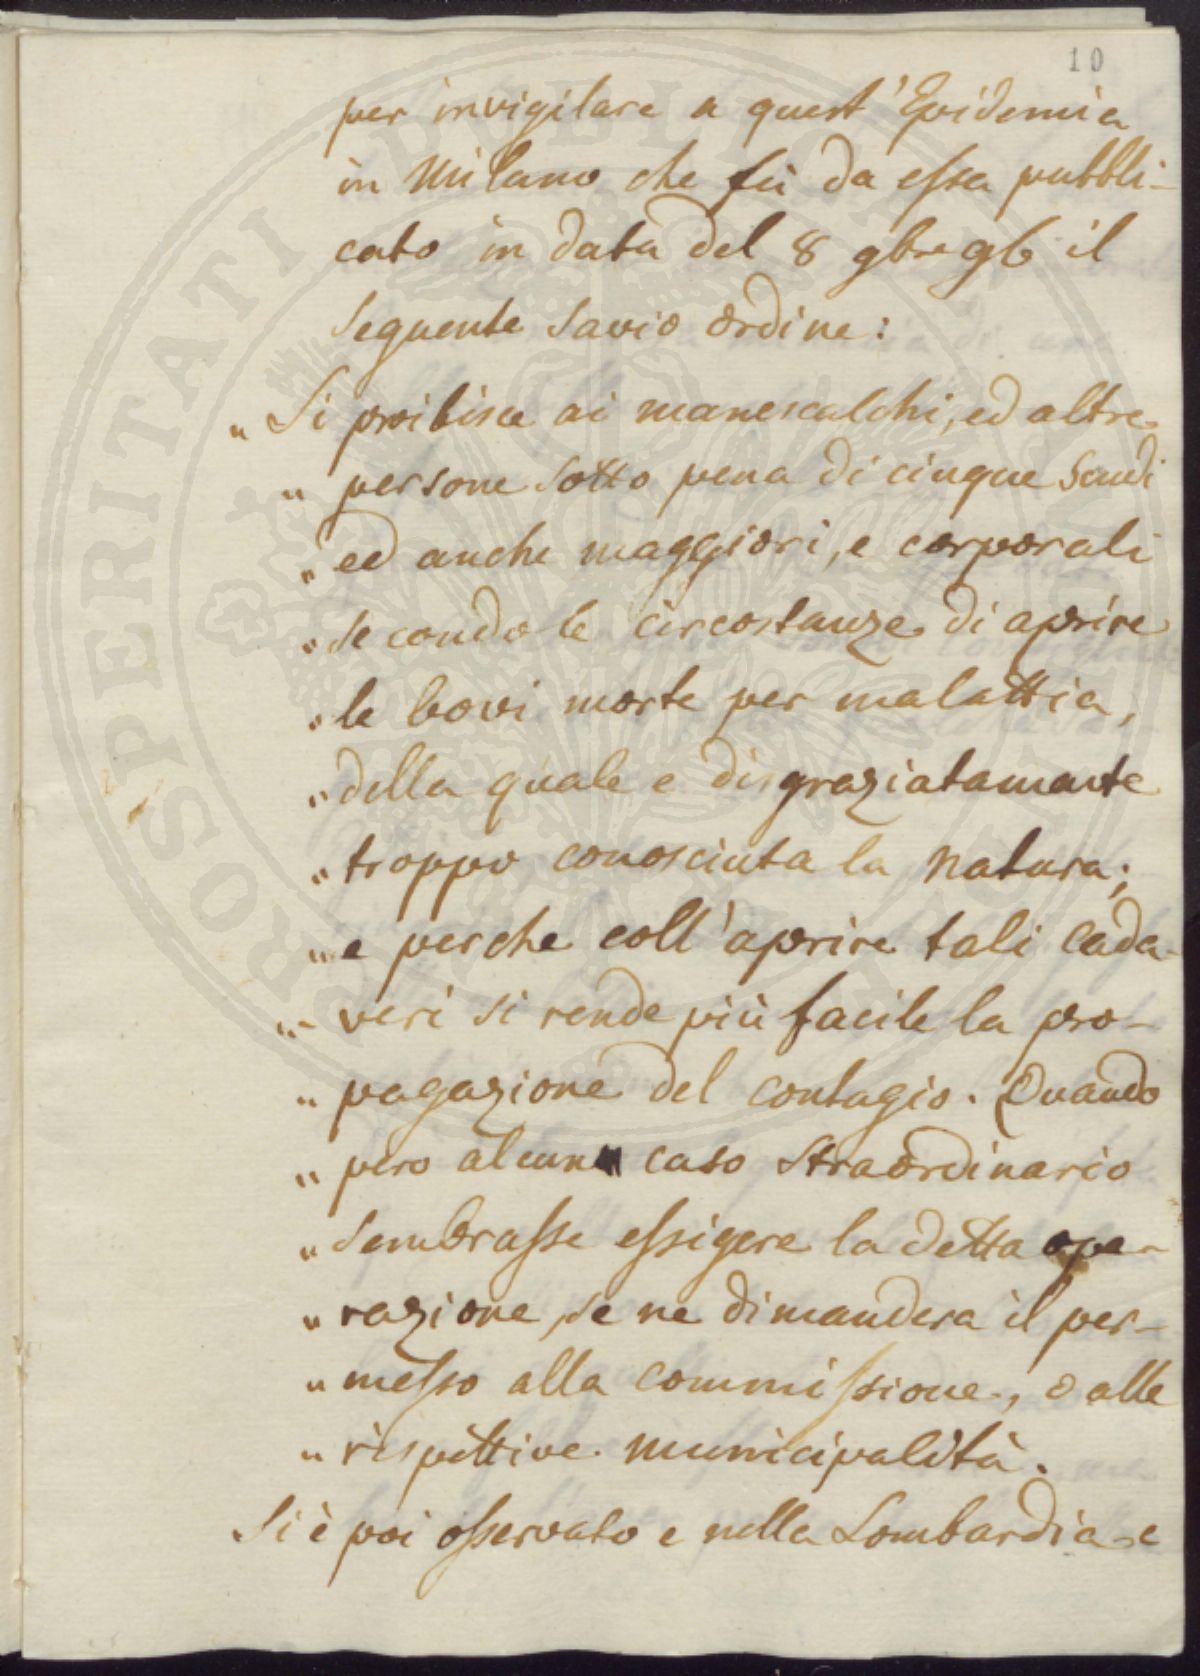 10
per invigilare a quest'Epidemia
in Milano che fù da essa pubbli-
cato in data del 8 9bre 96 il
seguente savio ordine:
" Si proibisce ai manescalchi, ed altre
" persone sotto pena di cinque Scudi
" ed anche maggiori, e corporali
" secondo le circostanze di aprire
" le bovi morte per malattia,
" della quale e disgraziatamente
" troppo conosciuta la natura;
" e perche coll'aprire tali cada-
" veri si rende più facile la pro-
" pagazione del contagio. Quando
" pero alcun caso straordinario
" sembrasse essigere la detta ope-
" razione, se ne dimandera il per-
" messo alla commissione, o alle
" rispettive municipalità.
Si è poi osservato e nella Lombardia e
PROSPERITATI PUBLICAE AUGENDAE